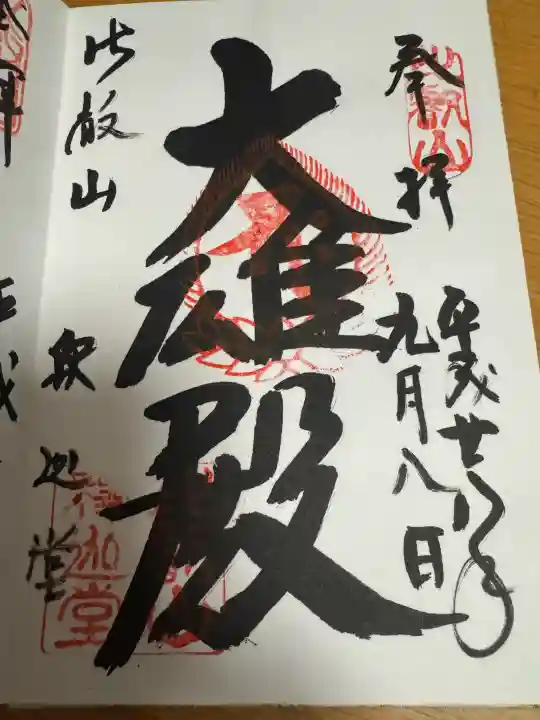 奉拝
平成廿八年
九月八日
大雄殿
比叡山
釈迦堂
釈迦堂